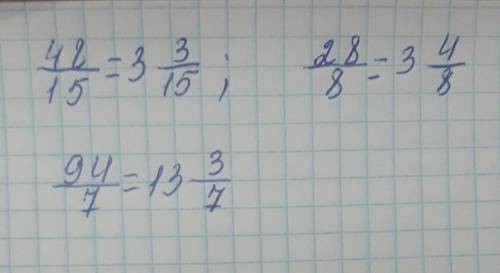 48/15 = 3 3/15 ; 28/8 = 3 4/8
94/7 = 13 3/7